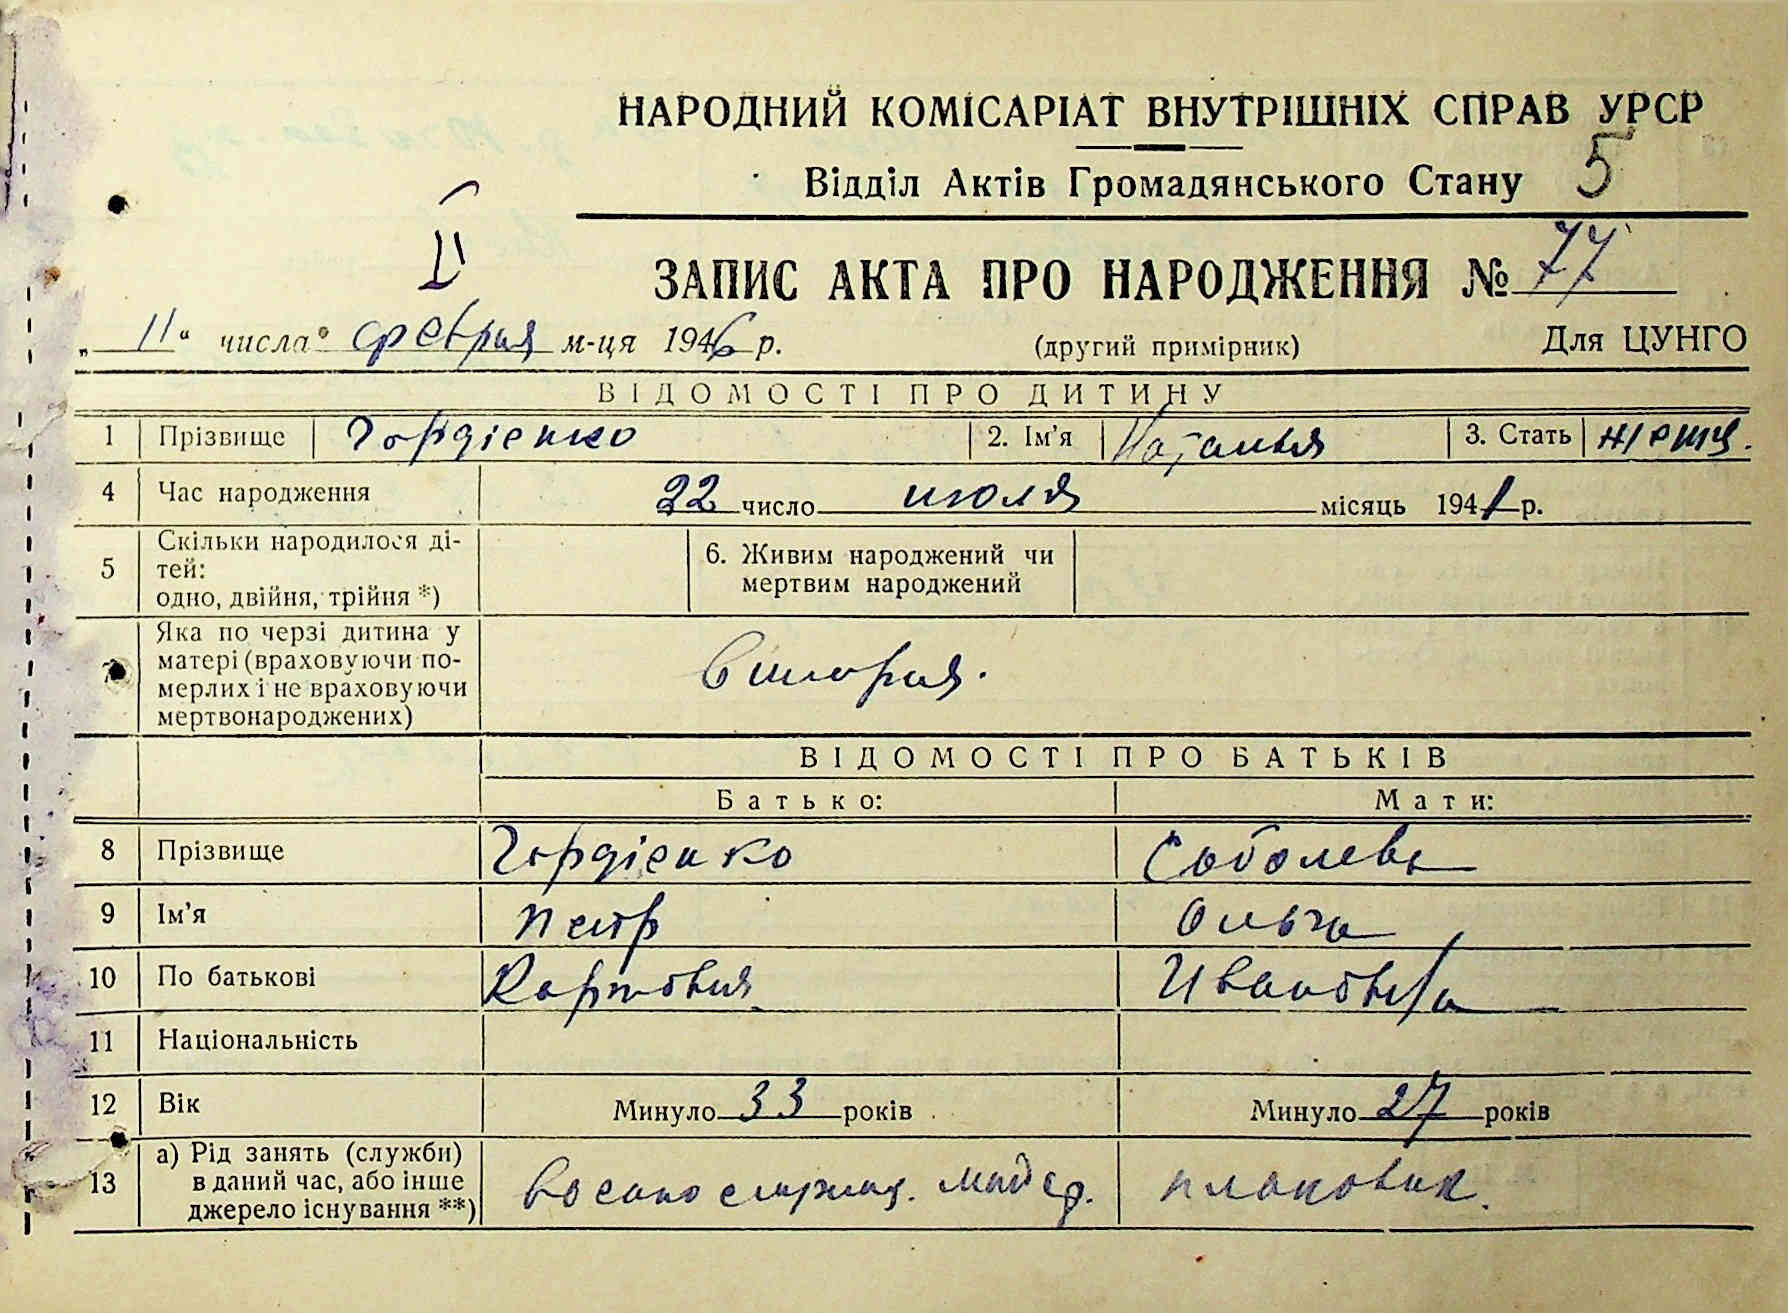 НАРОДНИЙ КОМІСАРІАТ ВНУТРІШНІХ СПРАВ УРСР
Відділ Актів Громадянського Стану 5
II
ЗАПИС АКТА ПРО НАРОДЖЕННЯ № 77
„ 11 “ числа февраля м-ця 1946 р. (другий примірник) Для ЦУНГО
ВІДОМОСТІ ПРО ДИТИНУ
1 Прізвище Гордієнко 2. Ім’я Наталья 3. Стать женщ.
4 Час народження 22 число июля місяць 1941 р.
5 Скільки народилося ді-
тей:
одно, двійня, трійня *)
6. Живим народжений чи
мертвим народжений
7 Яка по черзі дитина у
матері (враховуючи по-
мерлих і не враховуючи
мертвонароджених)
вторая.
ВІДОМОСТІ ПРО БАТЬКІВ
Батько: Мати:
8 Прізвище Гордієнко Соболева
9 Ім’я Петр Ольга
10 По батькові Ивановна
11 Національність
12 Вік Минуло 33 років Минуло 27 років
13 а) Рід занять (служби)
в даний час, або інше
джерело існування **)
военнослужащ. плановик.